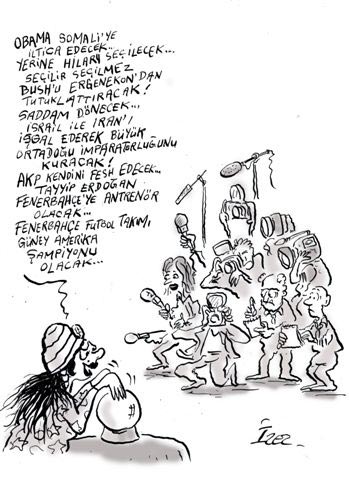 OBAMA SOMALİ'YE
İLTİCA EDECEK..
YERİNE HİLARİ SEÇİLECEK...
SEÇİLİR SEÇİLMEZ
BUSH'U ERGENEKON'DAN
TUTUKLATTIRACAK!
SADDAM DÖNECEK...
İSRAİL İLE İRAN'I
İŞGAL EDEREK BÜYÜK
ORTADOĞU İMPARATORLUĞUNU
KURACAK!
AKP KENDİNİ FESH EDECEK...
TAYYİP ERDOĞAN
FENERBAHÇE'YE ANTRENÖR
OLACAK...
FENERBAHÇE FUTBOL TAKIMI
GÜNEY AMERİKA
ŞAMPİYONU
OLACAK...